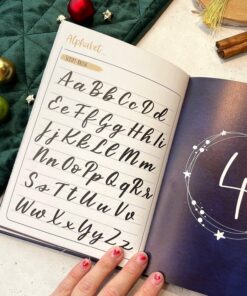 Alphabet
Aa Bb Cc Dd
Ee Ff Gg Hh Ii
Jj Kk Ll Mm
Nn Oo Pp Qq Rr
Ss Tt Uu Vv
Ww Xx Yy Zz
4